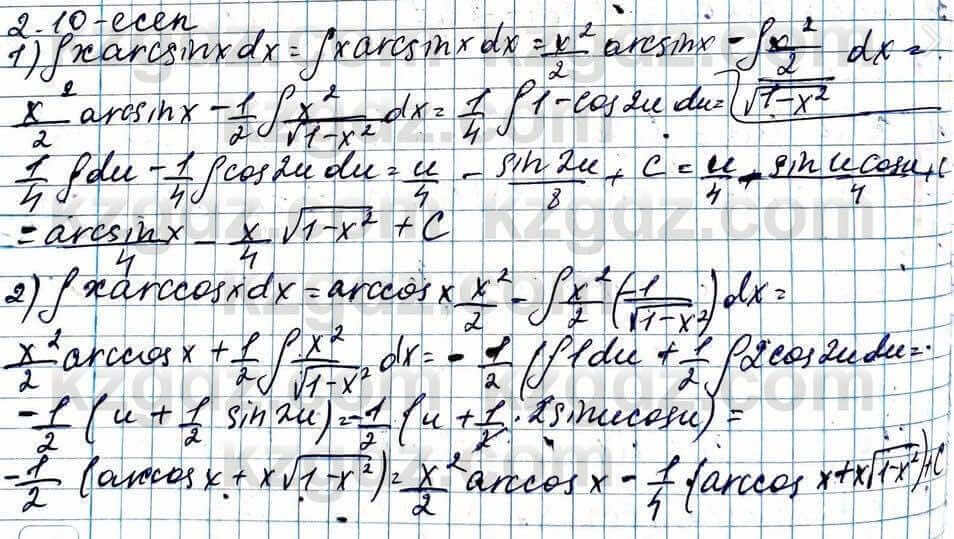 2.10-есеп
1) ∫x arcsinx dx = ∫x arcsinx dx = x²/2 arcsinx - ∫ (x²/2)/√(1-x²) dx =
x²/2 arcsinx - 1/2 ∫ x²/√(1-x²) dx = 1/4 ∫1-cos2u du =
1/4 ∫du - 1/4 ∫cos2u du = u/4 - sin2u/8 + C = u/4 - sinu cosu/4 + C
= arcsinx/4 - x/4 √(1-x²) + C
2) ∫x arccosx dx = arccosx x²/2 - ∫ x²/2 (-1/√(1-x²)) dx =
x²/2 arccosx + 1/2 ∫ x²/√(1-x²) dx = -1/2 (∫1du + 1/2 ∫2cos2u du =
-1/2 (u + 1/2 sin2u) = -1/2 (u + 1/2 · 2sinu cosu) =
-1/2 (arccosx + x√(1-x²)) = x²/2 arccosx - 1/4 (arccosx + x√(1-x²)) + C
kzgdz.com